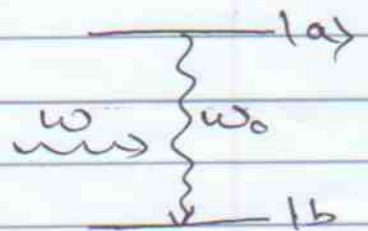 |a>
ω ω₀
|b